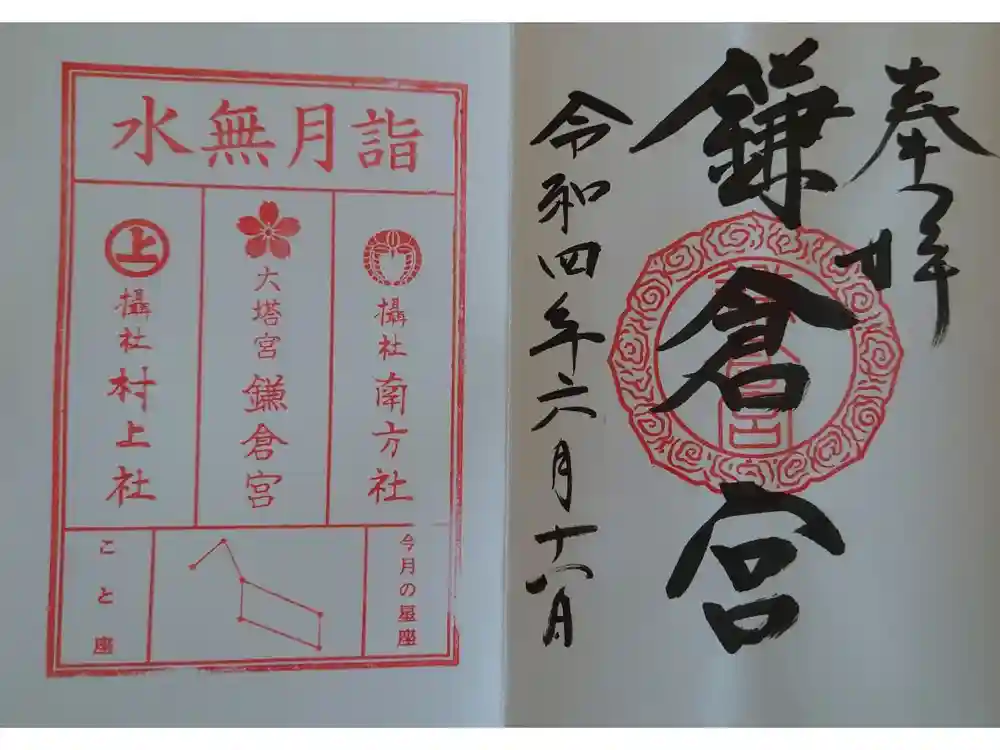 奉拝
鎌倉宮
令和四年六月十八日
水無月詣
摂社 南方社
大塔宮 鎌倉宮
上
攝社 村上社
今月の星座
こと座
鎌倉宮